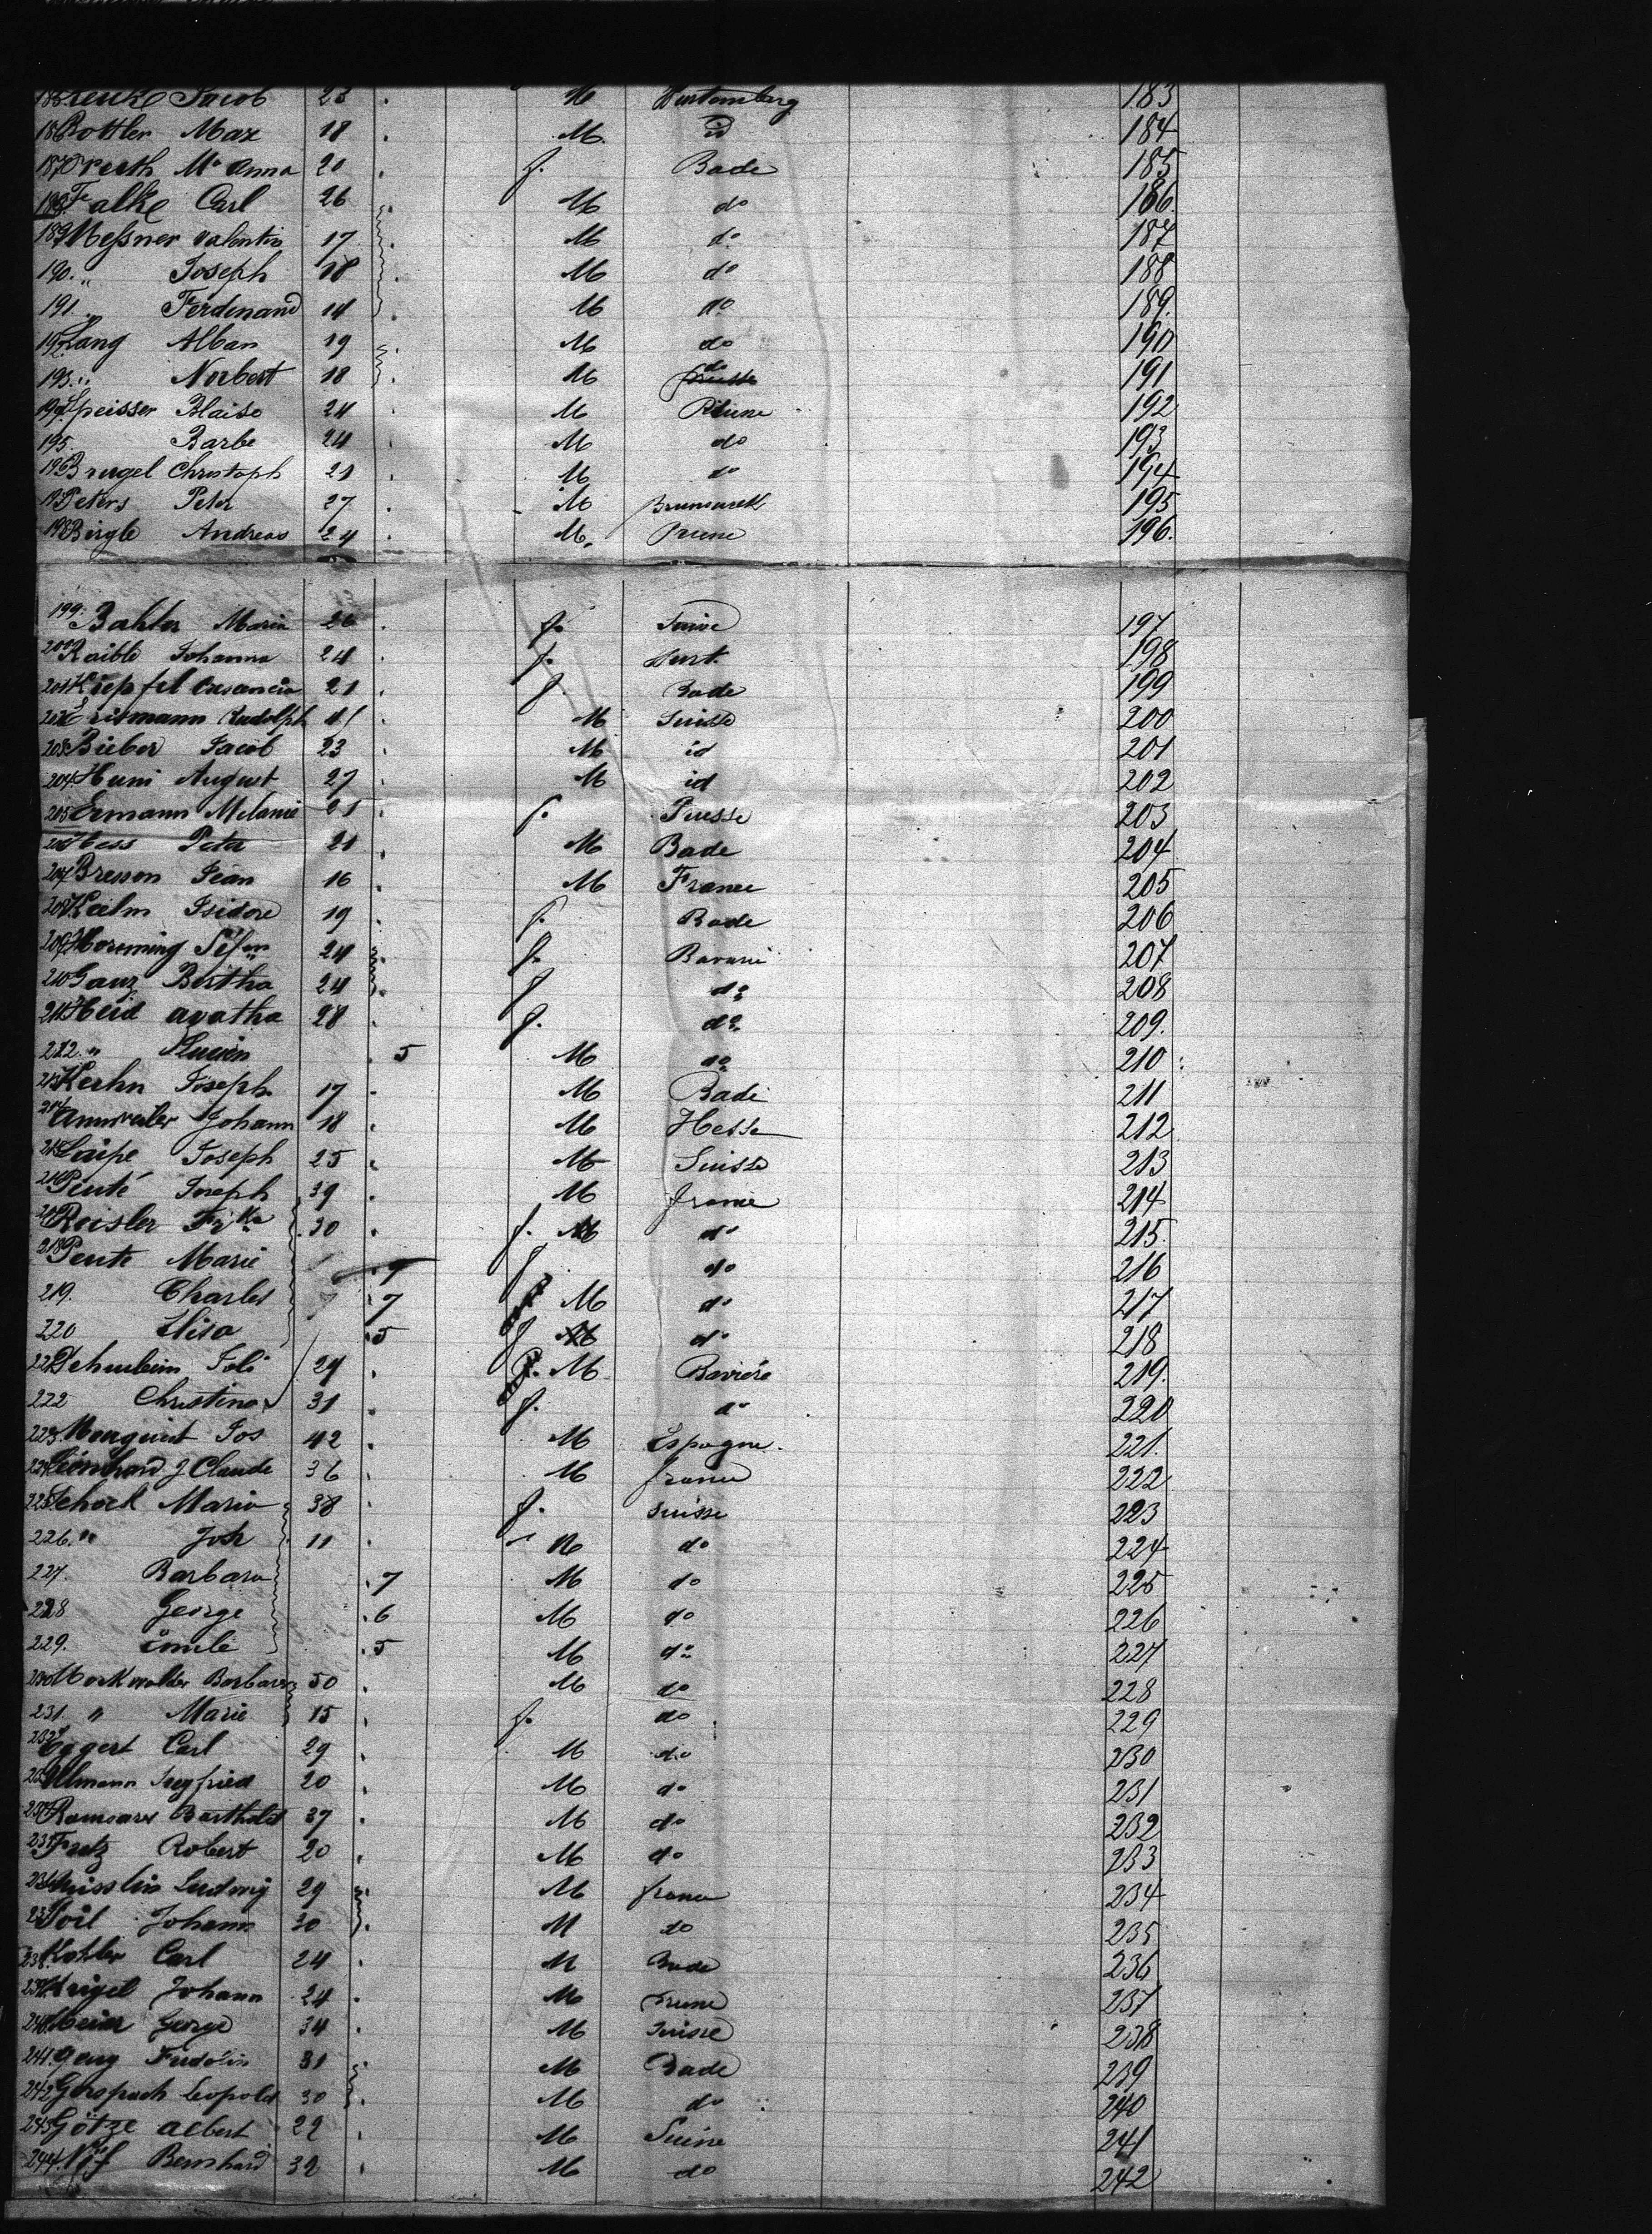 Jacob 23 M Wurtemberg 183
186 Bottler Max 18 M. id 184
187 Mª Anna 20 f. Bade 185
188 Falke Carl 26 M do 186
189 Messner Valentin 17 M do 187
190. " Joseph 18 M do 188
191. " Ferdinand 14 M do 189.
192. Lang Alban 19 M do 190
193. " Norbert 18 M do 191
194 Speisser Blaise 24 M 192
195. Barbe 24 M do 193
196 Brugel Christoph 21 M do 194
197 Peters Peter 27 M 195
198 Birgle Andreas 24 M. 196.
199. Bahler Maria 26 f. 197
200 Raible Johanna 24 f. Wurt. 198
201 21 f Bade 199
202 Erismann Rudolph M Suisse 200
203 Bieber Jacob 23 M id 201
204 Huni August 27 M id 202
205 Ermann Melanie 21 f. 203
206 Hess Peter 21 M Bade 204
207 Bresson Jean 16 M France 205
208 Kalm Isidore 19 f. Bade 206
209 24 f. 207
210 Ganz Bertha 24 f do 208
211 Heid agatha 28 f. do 209.
212. " Lucien 5 M do 210
213 Kerhn Joseph 17 M Bade 211
214 Annweiler Johann 18 M Hesse 212
215 Laipe Joseph 25 M Suisse 213
216 Penté Joseph 39 M france 214
217 Reisler 30 f. do 215.
218 Pente Marie 9 f do 216
219. Charles 7 M do 217
220 Elisa 5 f do 218
221 29 M Baviére 219.
222 Christina 31 f. do 220
223. Jos 42 M Espagne. 221.
224 J Claude 36 M france 222
225 Schock Maria 38 f. suisse 223
226. " Joh 11 M do 224
227. Barbara 7 M do 225
228 George 6 M do 226
229. Emile 5 M do 227
230 Markwalder Barbara 50 M do 228
231. " Marie 15 f. do 229
232 Eggert Carl 29 M do 230
233 Ulmann Siegfried 20 M do 231
234 Ramsauer Barthold 37 M do 232
235 Fretz Robert 20 M do 233
236 Ludwig 29 M france 234
237 Johann 30 M do 235
238. Kohler Carl 24 M Bade 236
239 Johann 24 M 237
240 Meier George 34 M Suisse 238
241. Geng Fridolin 31 M Bade 239
242 Gerspach Leopold 30 M do 240
243 Götze albert 29 M Suisse 241
244. Näf Bernhard 32 M do 242